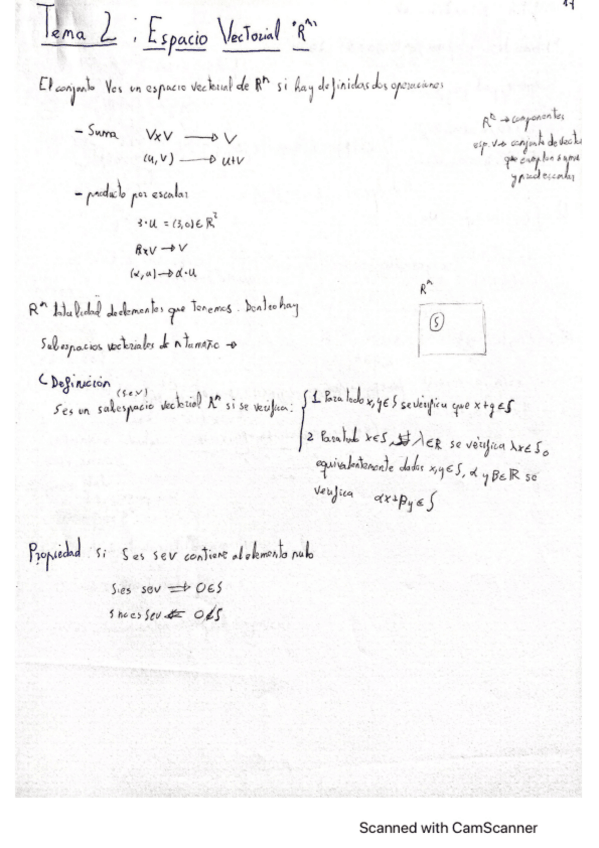 Tema 2 : Espacio Vectorial "Rⁿ"
El conjunto V es un espacio vectorial de Rⁿ si hay definidas dos operaciones
- Suma V×V → V
(u,v) → u+v
Rⁿ → componentes
esp. V → conjunto de vect
que cumplen suma
y prod escalar
- producto por escalar
3·u = (3,0) ∈ R²
R×V → V
(α,u) → α·u
Rⁿ totalidad de elementos que tenemos. Dentro hay
Subespacios vectoriales de n tamaño →
Rⁿ
S
Definición
(sev)
S es un subespacio vectorial Rⁿ si se verifica:
1 Para todo x,y ∈ S se verifica que x+y ∈ S
2 Para tod x ∈ S, λ ∈ R se verifica λx ∈ S o
equivalentemente dados x,y ∈ S, α y β ∈ R se
verifica αx+βy ∈ S
Propiedad: Si S es sev contiene al elemento nulo
S es sev ⇒ 0∈S
S no es sev ⇐ 0∉S
Scanned with CamScanner